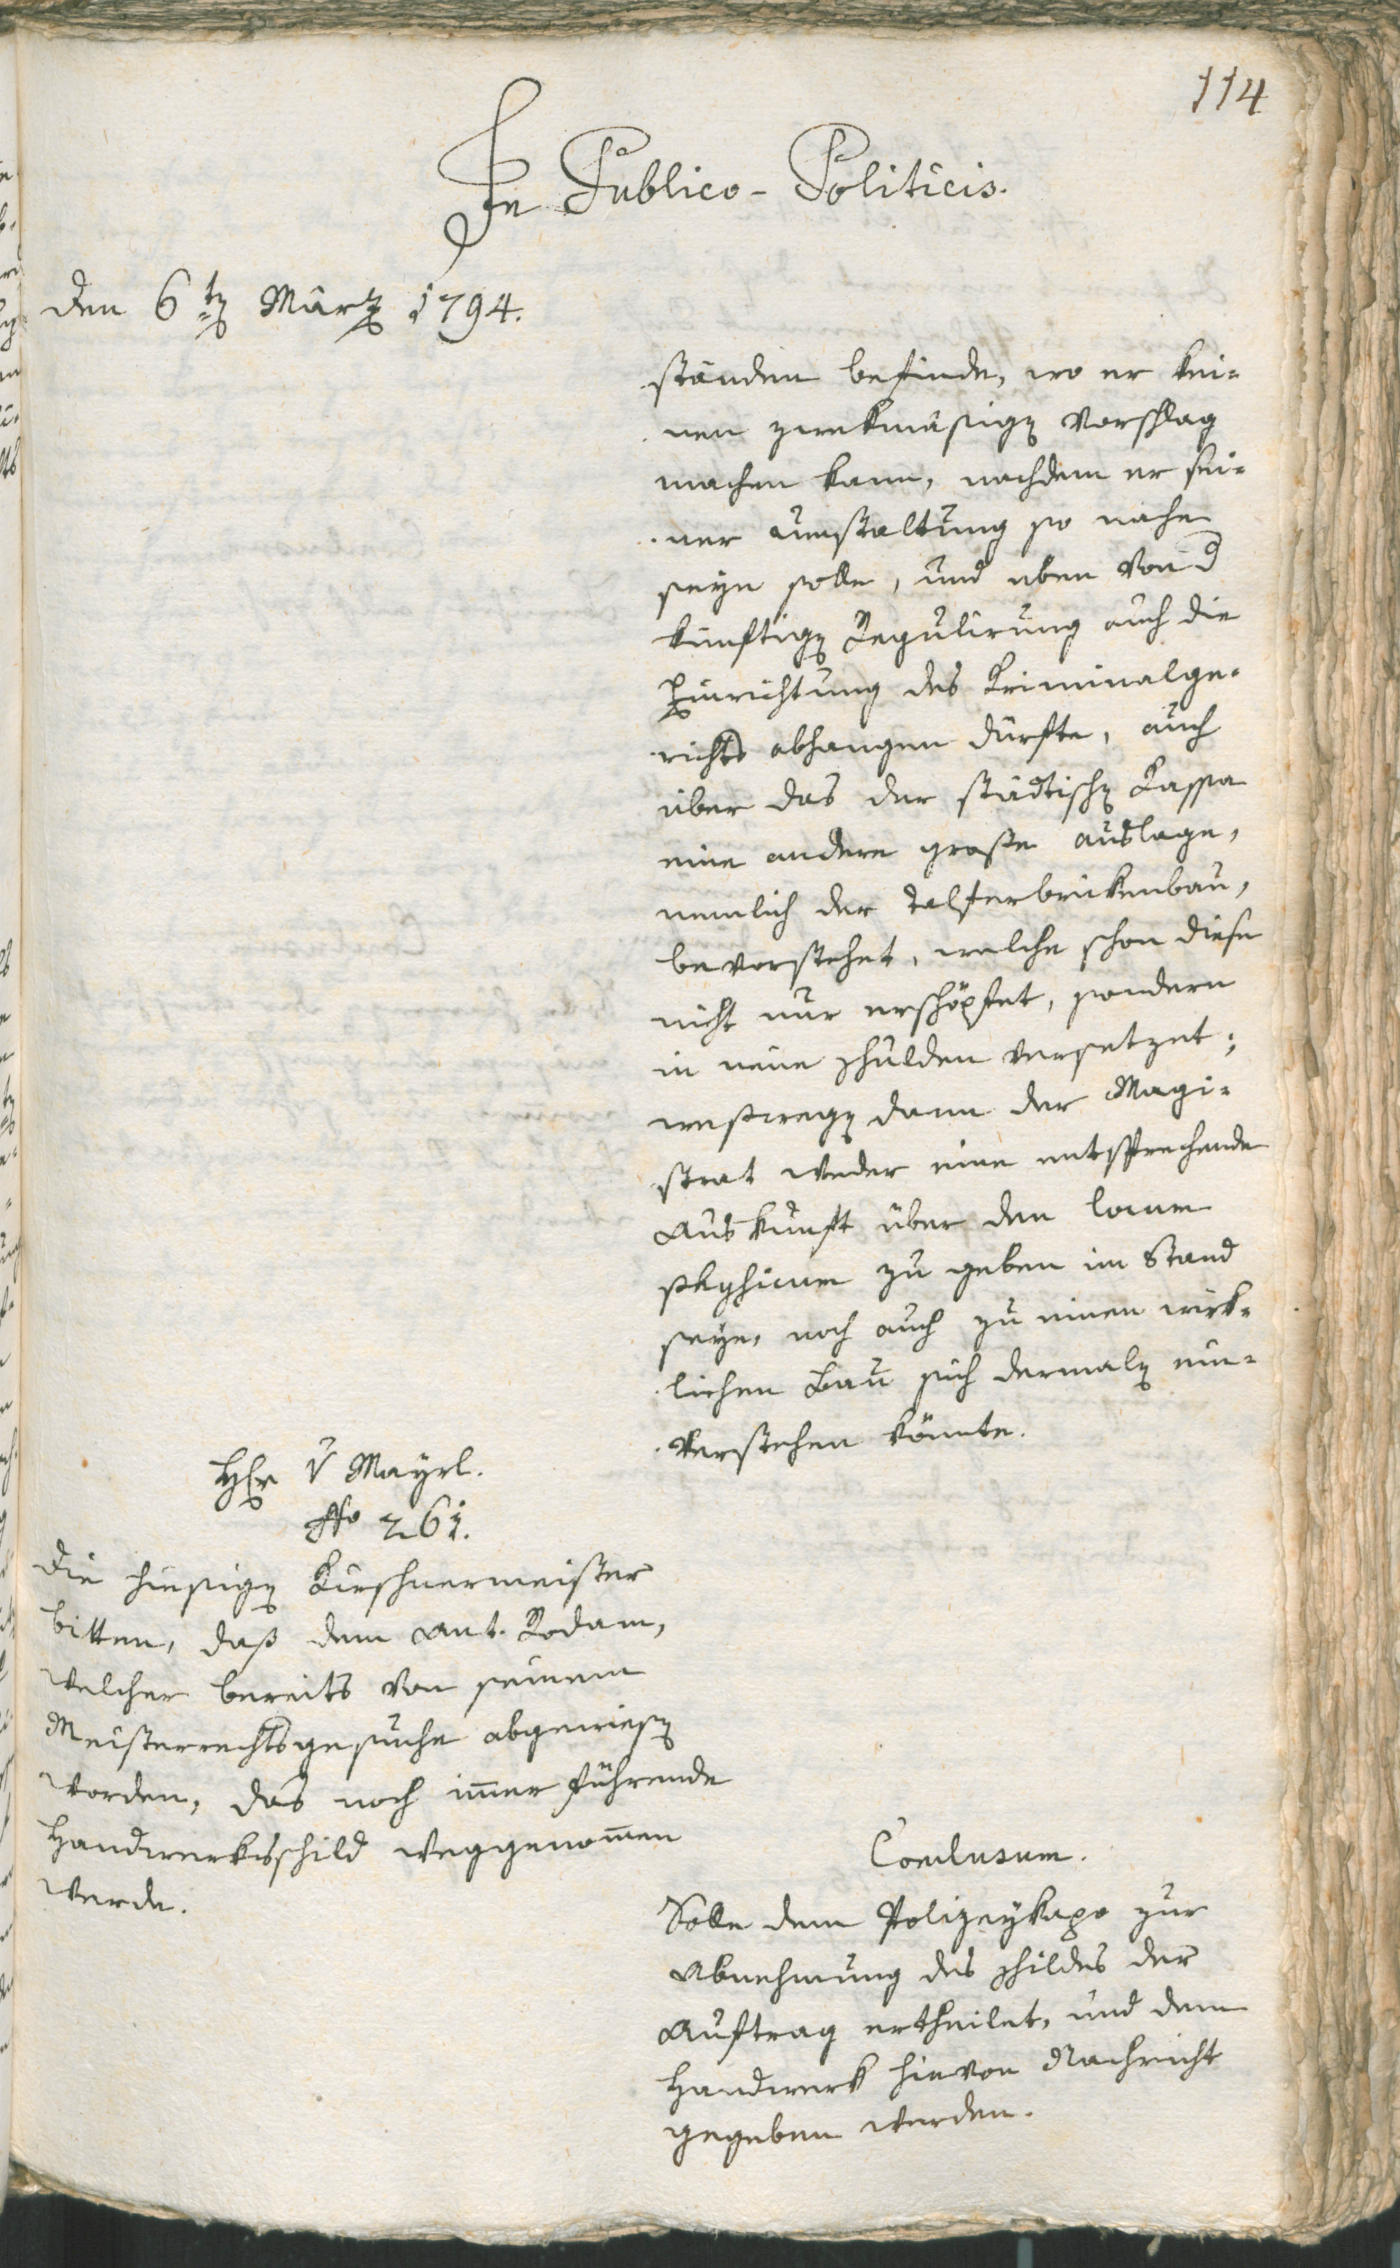 114
In Publico-Politicis.
den 6ten März 1794.
ständen befinde, wo er kei-
nen zwekmäsigen Vorschlag
machen kann, nachdem er sei-
ner Umstaltung so nahe
seyn solle, und eben von d
künftigen Regulirung auch die
Einrichtung des Kriminalge-
richts abhangen dürfte, auch
über das der städtischen Kassa
eine andere große Auslage,
nemlich der Talferbrükenbau,
bevorstehet, welche schon diese
nicht nur erschöpfet, sondern
in neue Schulden versetzet;
weßwegen dann der Magi-
strat weder eine entsprechende
Auskunft über den locum
zu geben im Stand
seye, noch auch zu einen wirk-
lichen Bau sich dermalen ein-
verstehen könnte.
Hr v Mayrl.
No 261.
Die hiesigen Kirschnermeister
bitten, daß dem Ant. Rodam,
welcher bereits von seinem
Meisterrechtsgesuche abgewiesen
worden, das noch imer führende
Handwerksschild weggenomen
werde.
Conclusum.
Solle dem Polizeykapo zur
Abnehmung des Schildes der
Auftrag ertheilet, und dem
Handwerk hievon Nachricht
gegeben werden.